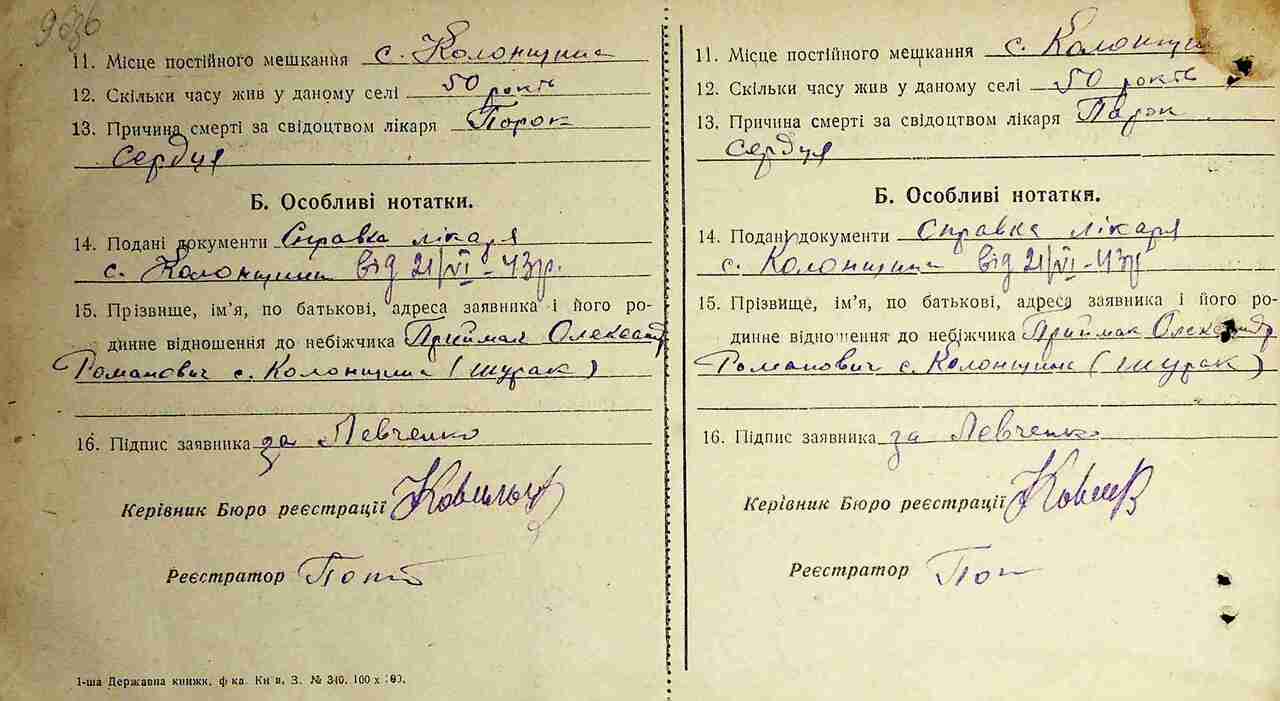 9636
11. Місце постійного мешкання с. Колонщина
12. Скільки часу жив у даному селі 50 років
13. Причина смерті за свідоцтвом лікаря Порок
сердця
Б. Особливі нотатки.
14. Подані документи Справка лікаря
с. Колонщини від 21/VI-43р.
15. Прізвище, ім’я, по батькові, адреса заявника і його ро-
динне відношення до небіжчика Приймак Олександр
Романович с. Колонщина (шурак)
16. Підпис заявника за Левченко
Керівник Бюро реєстрації
Реєстратор
1-ша Державна книжк. ф-ка. Київ, З. № 340. 100 х
11. Місце постійного мешкання с. Колонщи
12. Скільки часу жив у даному селі 50 років
13. Причина смерті за свідоцтвом лікаря Парок
сердця
Б. Особливі нотатки.
14. Подані документи Справка лікаря
с. Колонщини від 21/VI-43р
15. Прізвище, ім’я, по батькові, адреса заявника і його ро-
динне відношення до небіжчика Приймак Олександр
Романович с. Колонщина (шурак)
16. Підпис заявника за Левченко
Керівник Бюро реєстрації
Реєстратор